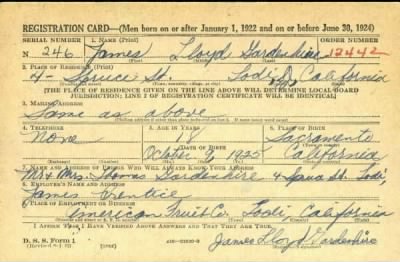 REGISTRATION CARD—(Men born on or after January 1, 1922 and on or before June 30, 1924)
SERIAL NUMBER 1. NAME (Print) ORDER NUMBER
N 246 James Lloyd Gardenhire 12442
(First) (Middle) (Last)
2. PLACE OF RESIDENCE (Print)
4- Spruce St. Lodi California
(State)
[THE PLACE OF RESIDENCE GIVEN ON THE LINE ABOVE WILL DETERMINE LOCAL BOARD
JURISDICTION; LINE 2 OF REGISTRATION CERTIFICATE WILL BE IDENTICAL]
3. MAILING ADDRESS
Same as above
4. TELEPHONE 5. AGE IN YEARS 6. PLACE OF BIRTH
None 18 Sacramento
DATE OF BIRTH
October 1925 California
7. NAME AND ADDRESS OF PERSON WHO WILL ALWAYS KNOW YOUR ADDRESS
Mr & Mrs. Thomas Gardenhire 4 St. Lodi,
8. EMPLOYER'S NAME AND ADDRESS
James
9. PLACE OF EMPLOYMENT OR BUSINESS
American Fruit Co. Lodi, California
I AFFIRM THAT I HAVE VERIFIED ABOVE ANSWERS AND THAT THEY ARE TRUE.
D. S. S. Form 1
James Lloyd Gardenhire